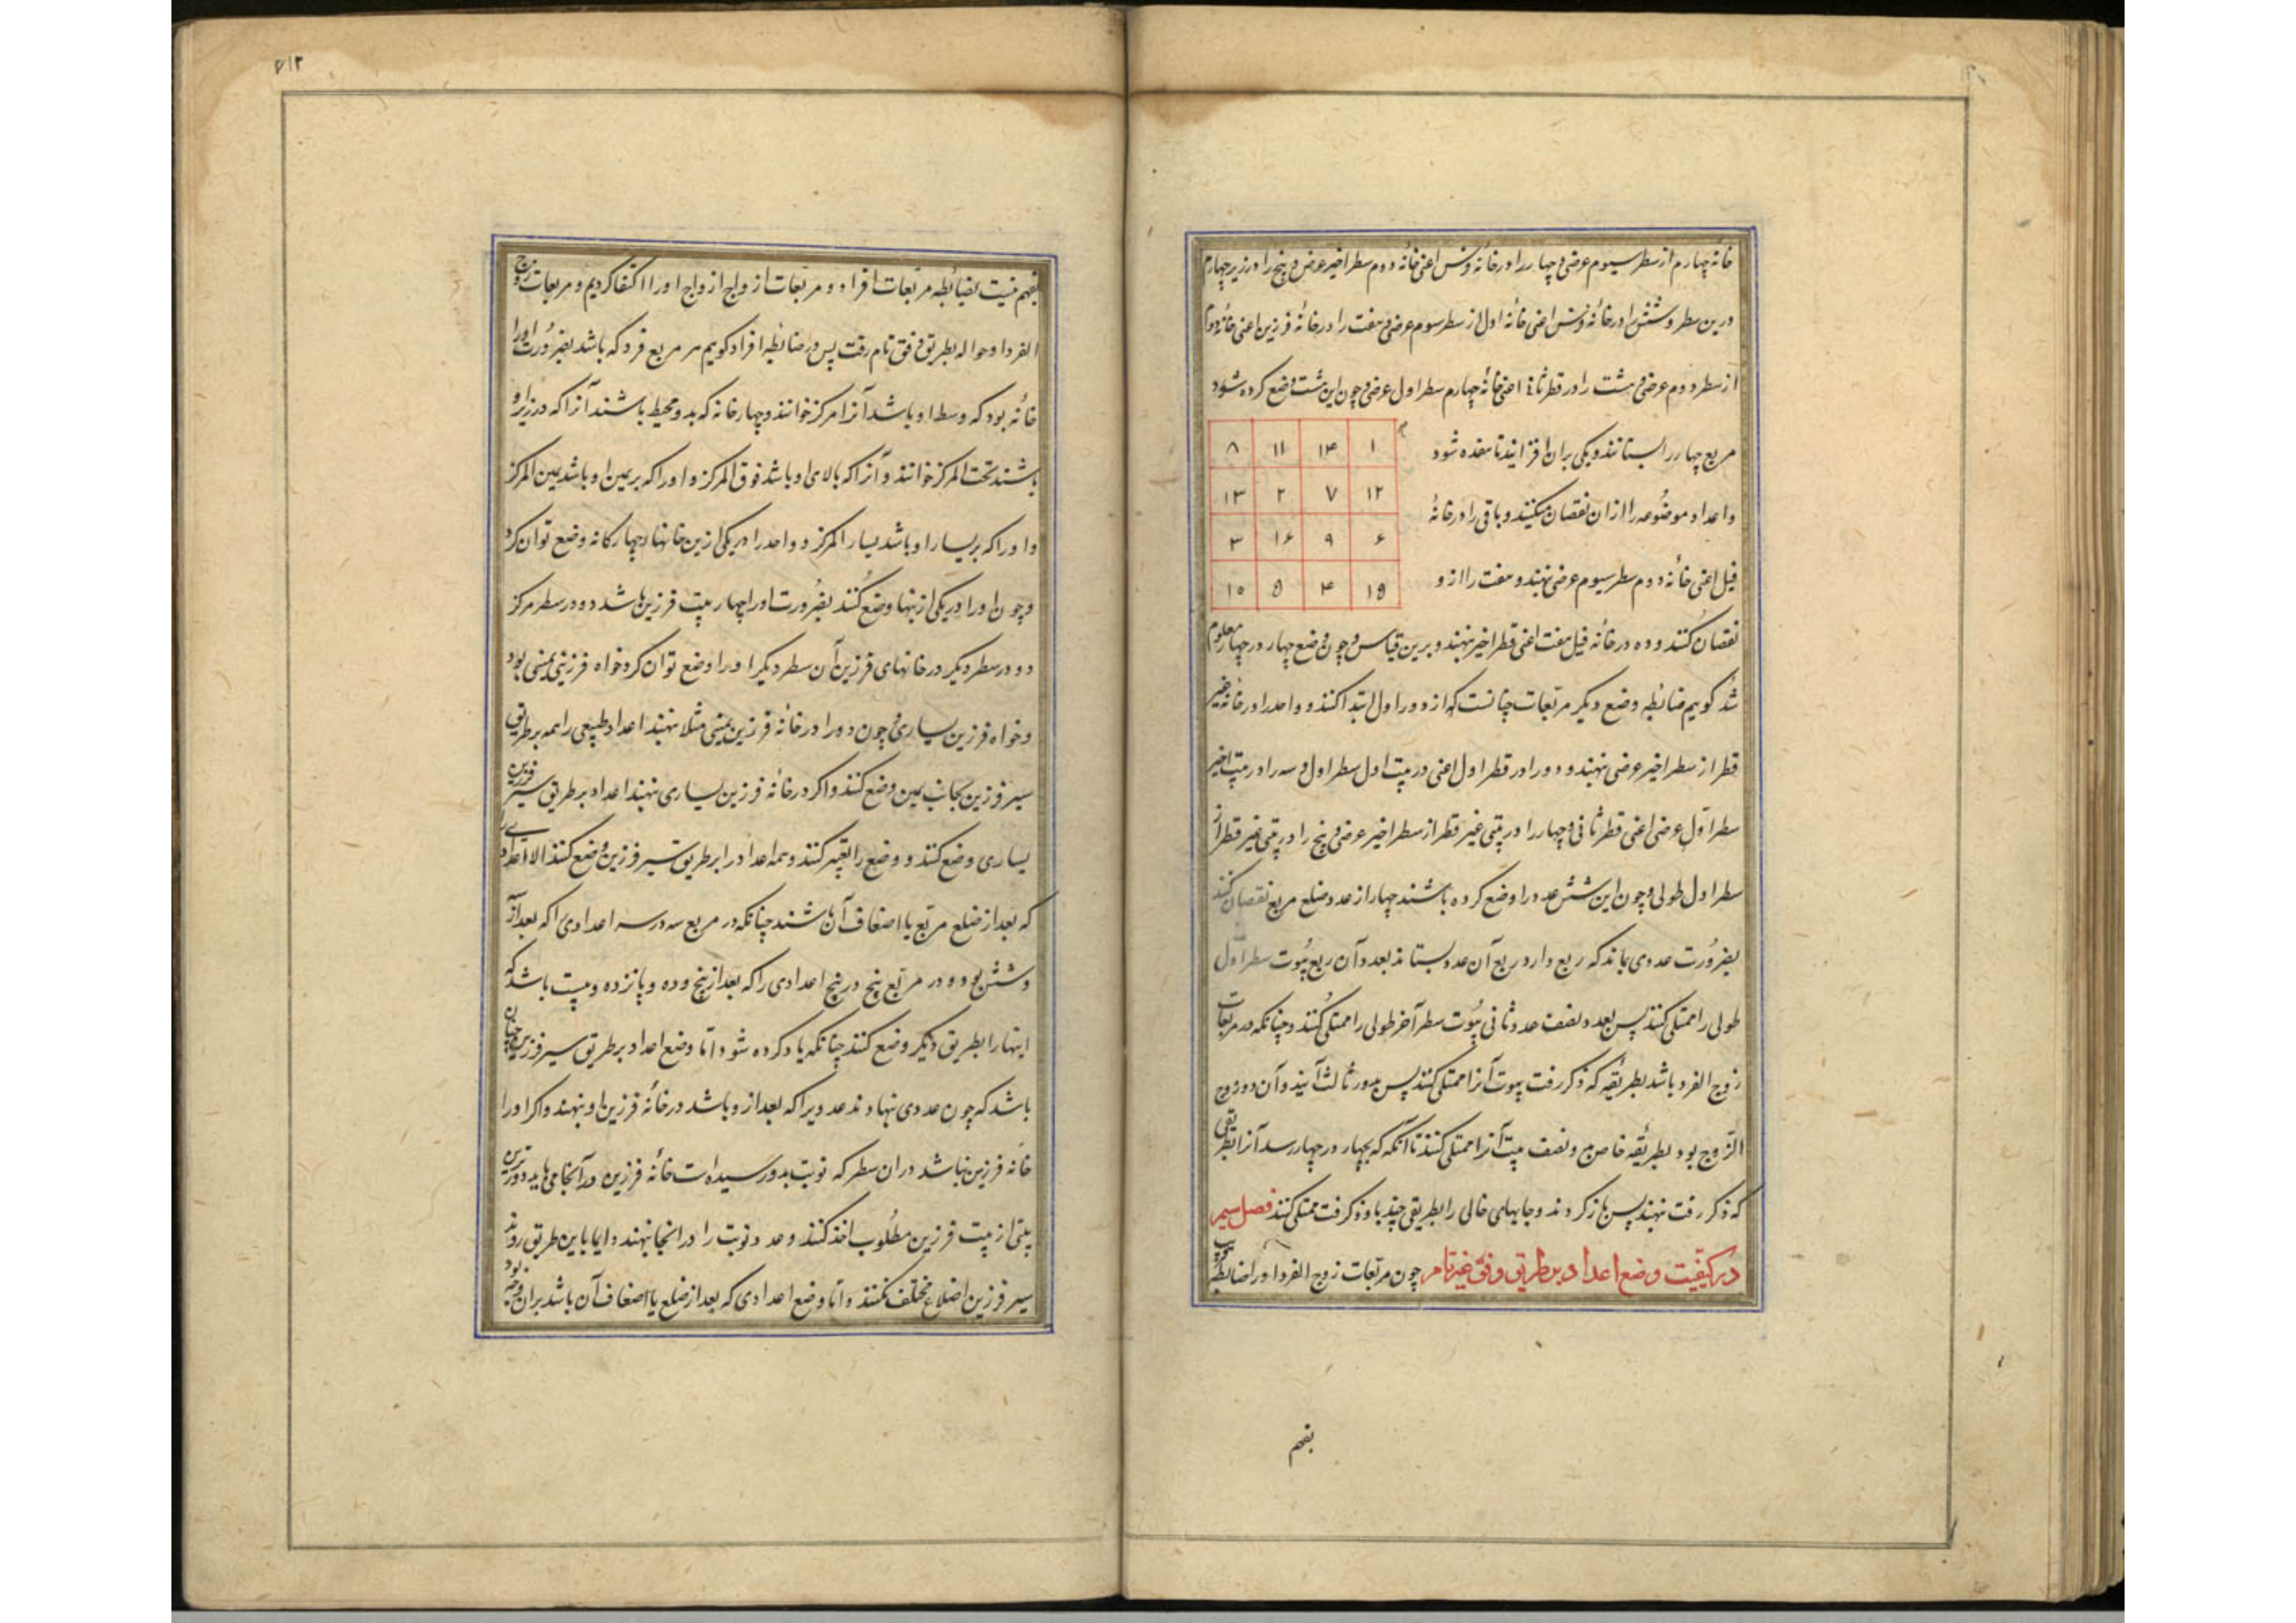 خانه چهارم از سطر سیوم عرضی و چهار را در خانه فرس اعنی خانه دوم سطر اخیر عرضی و پنج را در زیر چهارم
درین سطر و شش را در خانه فرس اعنی خانه اول از سطر سوم عرضی و هفت را در خانه فرزین اعنی خانه دوم
از سطر دوم عرضی و هشت را در قطر ثانی اعنی خانه چهارم سطر اول عرضی و چون این هشت وضع کرده شود
مربع چهار را بستانند و یکی بران افزایند تا هفده شود
۱ ۱۴ ۱۱ ۸
واعداد موضوعه را ازان نقصان میکنند و باقی را در خانهٔ
۱۲ ۷ ۲ ۱۳
۶ ۹ ۱۶ ۳
فیل اعنی خانه دوم سطر سیوم عرضی نهند و هفت را ازو
۱۵ ۴ ۵ ۱۰
نقصان کنند و ده در خانه فیل هفت اعنی قطر اخیر نهند و برین قیاس و چون وضع چهار در چهار معلوم
شد کویم ضابطه وضع دیکر مربعات چنانست که از دور اول ابتدا کنند و واحد را در خانه غیر
قطر از سطر اخیر عرضی نهند و دو را در قطر اول اعنی در بیت اول سطر اول و سه را در بیت اخیر
سطر اول عرضی اعنی قطر ثانی و چهار را در بیتی غیر قطر از سطر اخیر عرضی و پنج را در بیتی غیر قطر از
سطر اول طولی و چون این شش عدد را وضع کرده باشند چهار از عدد ضلع مربع نقصان کنند
بضرورت عددی بماند که ربع دارد ربع آن عدد بستانند بعدد آن ربع بیوت سطر اول
طولی را ممتلی کنند پس بعدد نصف عدد ثانی بیوت سطر آخر طولی را ممتلی کنند و چنانکه در مربعات
زوج الفرد باشد بطریقه که ذکر رفت بیوت آنرا ممتلی کنند پس بدور ثالث آیند و آن دور زوج
الزوج بود بطریقه خاص و نصف بیت آنرا ممتلی کنند تا آنکه که بچهار در چهار رسد آنرا بطریقی
که ذکر رفت نهند پس باز کردند و جایهای خالی را بطریقی چند باو ذکر رفت ممتلی کنند فصل سیم
در کیفیت وضع اعداد بطریق وفق غیر تام چون مربعات زوج الفرد را ضابطه
بفهم
۶۱۲
بفهم نیست بضابطه مربعات افراد و مربعات ازواج ازواج او را اکتفا کردیم و مربعات زوج
الفرد او حواله بطریق وفق تام رفت پس در ضابطه افراد کویم هر مربع فرد که باشد بضرورت او را
خانه بود که وسط او باشد آنرا مرکز خوانند و چهار خانه که بدو محیط باشند آنرا که در زیر او
باشند تحت المرکز خوانند و آنرا که بالای او باشد فوق المرکز و او را که بر یمین او باشد یمین المرکز
و او را که بر یسار او باشد یسار المرکز و واحد را در یکی ازین خانهاء چهارکانه وضع توان کرد
و چون او را در یکی ازینها وضع کنند بضرورت او را چهار بیت فرزین باشد دو در سطر مرکز
دو در سطر دیکر در خانهای فرزین آن سطر دیکر او را وضع توان کرد خواه فرزین یمنی بود
و خواه فرزین یساری و چون دو را در خانه فرزین یمینی مثلا نهند اعداد طبیعی را همه بر طریق
سیر فرزین بجانب یمین وضع کنند و اکر در خانه فرزین یساری نهند اعداد بر طریق سیر فرزین
یساری وضع کنند و وضع را تغییر نکنند و همه اعداد را بر طریق سیر فرزین وضع کنند الا اعدادی را
که بعد از ضلع مربع یا اضعاف آن باشند چنانکه در مربع سه در سه اعدادی را که بعد از سه
و شش بود و در مربع پنج در پنج اعدادی را که بعد از پنج و ده و پانزده و بیست باشد که
اینها را بطریق دیکر وضع کنند چنانکه یاد کرده شود اما وضع اعداد بر طریق سیر فرزین چنان
باشد که چون عددی نهادند عددیرا که بعد ازو باشد در خانه فرزین او نهند و اکر او را
خانه فرزین نباشد دران سطر که نوبت بدو رسیده است خانه فرزین در آنجا می باید دورترین
بیتی از بیت فرزین مطلوب اخذ کنند و عدد نوبت را در انجا نهند دایما باین طریق روند
سیر فرزین اضلاع مختلف نکنند و اما وضع اعدادی که بعد از ضلع یا اضعاف آن باشد بران وجه بود